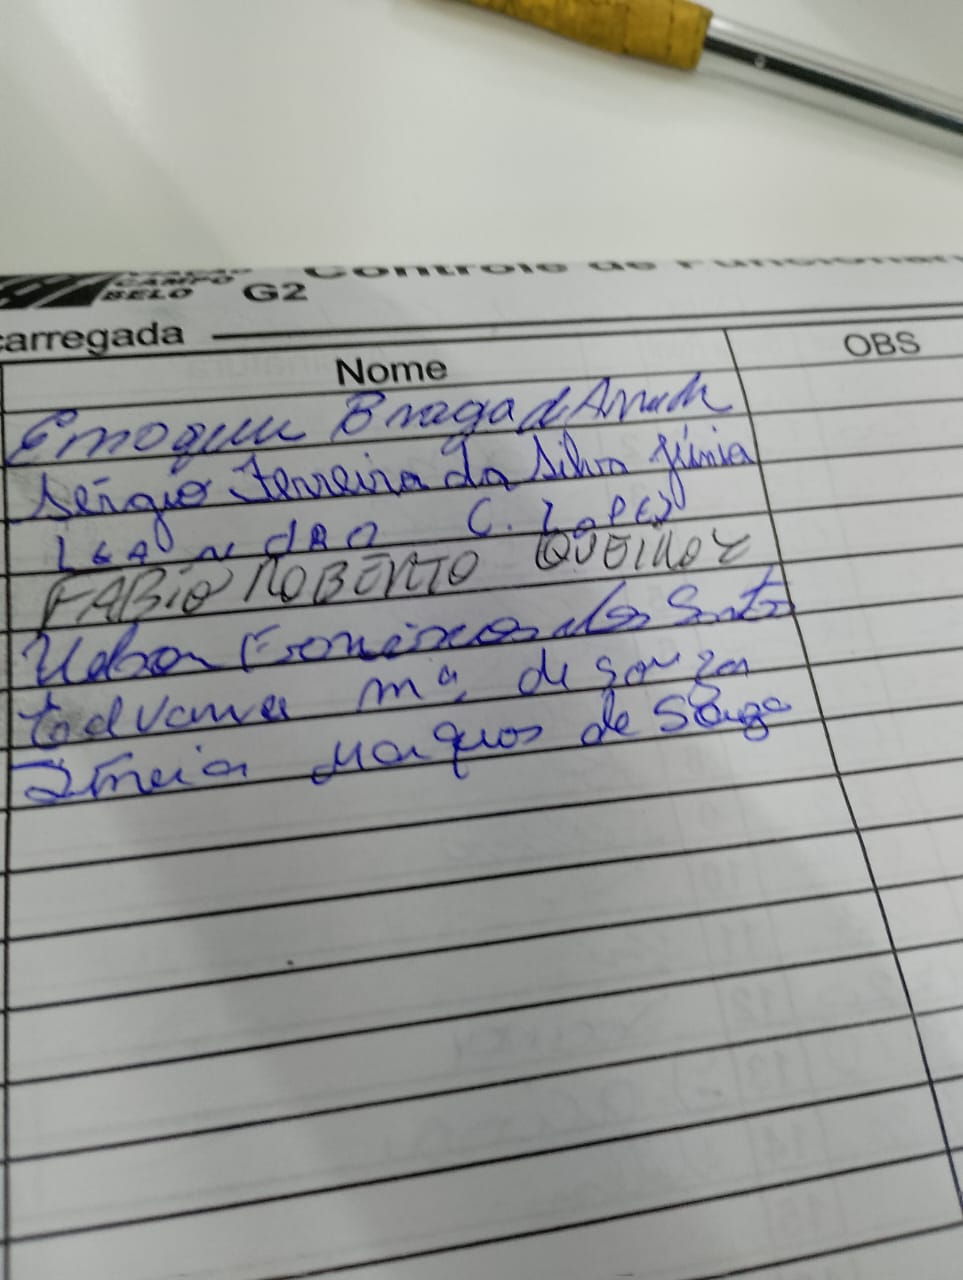 CAMPO
BELO G2 Controle de Funcionári
carregada
Nome OBS
Braga d Arruda
Sérgio Ferreira da Silva Júnior
LEANdRO C. Lopes
FABIO ROBERTO QUEIROZ
Francisco dos Santos
mª de Souza
Marques de Souza